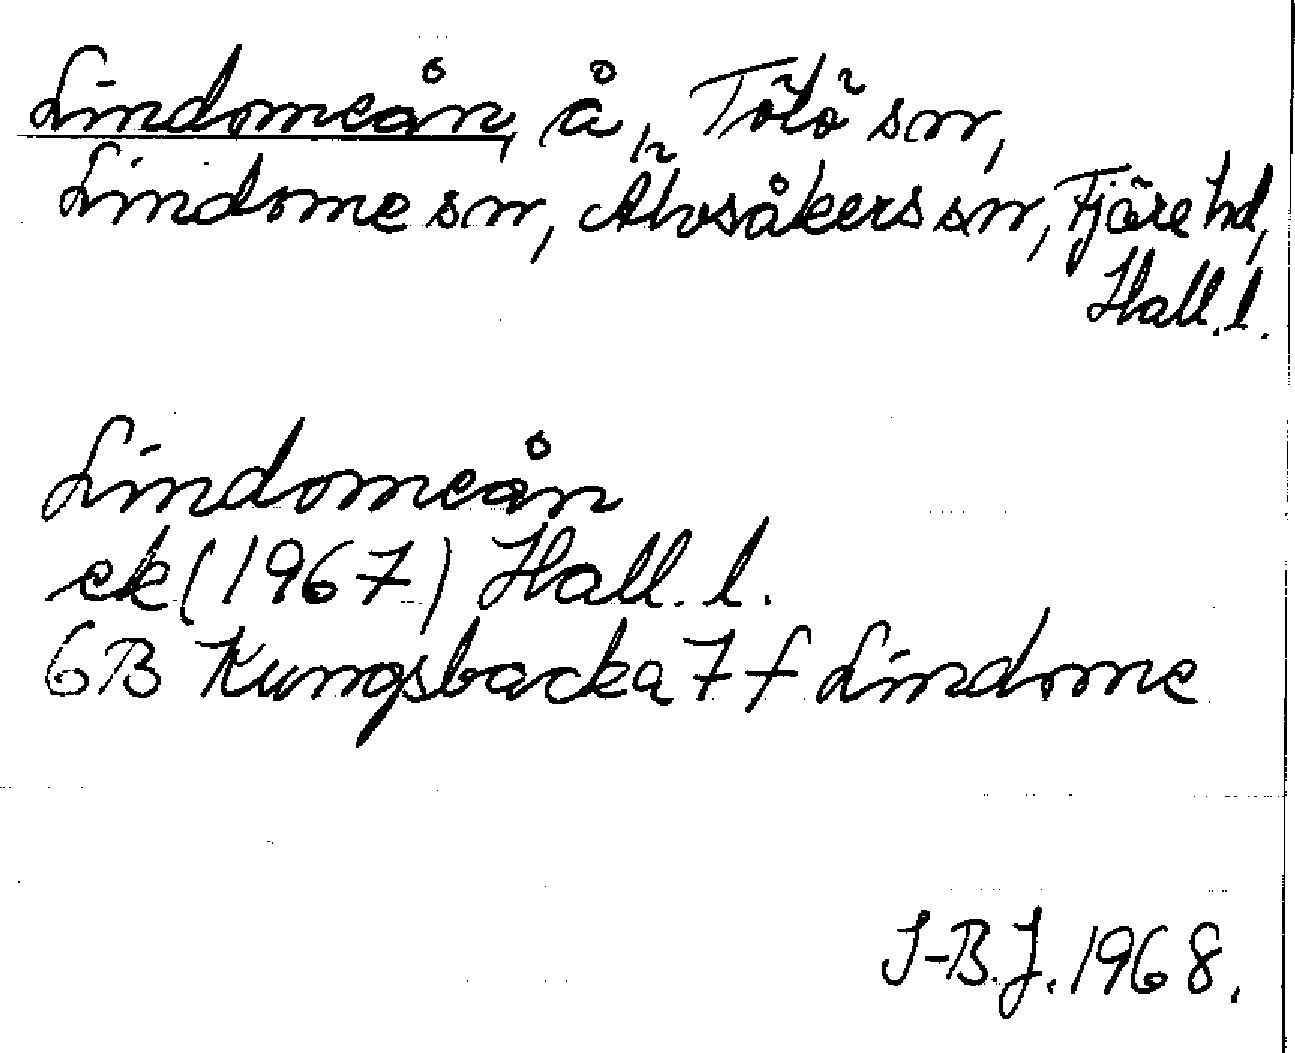 Lindomeån, å, Tölö sn,
Lindome sn, Älvsåkers sn, Fjäre hd,
Hall. l.
Lindomeån
ek (1967) Hall. l.
6B Kungsbacka 7 f Lindome
I-B.J. 1968.